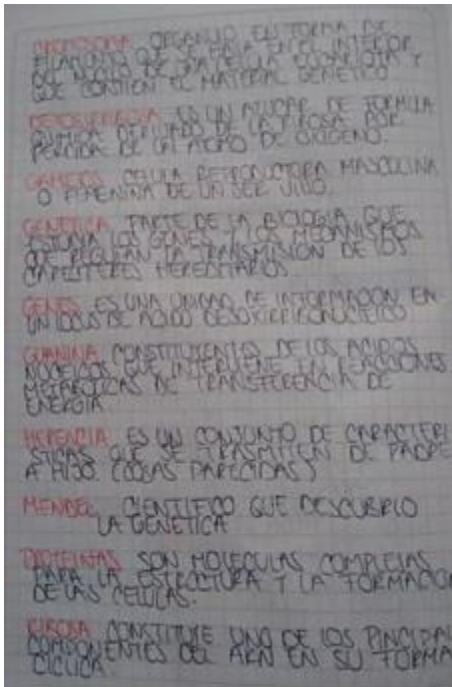 CROMOSOMA ORGANULO EN FORMA DE
FILAMENTO QUE SE HALLA EN EL INTERIOR
DEL NUCLEO DE UNA CELULA EUCARIOTA Y
QUE CONTIEN EL MATERIAL GENETICO
ES UN AZUCAR DE FORMULA
QUIMICA DERIVADO DE LA RIBOSA POR
PERDIDA DE UN ATOMO DE OXIGENO.
GAMETOS CELULA REPRODUCTORA MASCULINA
O FEMENINA DE UN SER VIVO.
GENETICA PARTE DE LA BIOLOGIA QUE
ESTUDIA LOS GENES Y LOS MECANISMOS
QUE REGULAN LA TRANSMISION DE LOS
CARACTERES HEREDITARIOS
GENES ES UNA UNIDAD DE INFORMACION EN
UN LOCUS DE ACIDO
GUANINA CONSTITUYENTES DE LOS ACIDOS
NUCEICOS QUE INTERVIENE EN REACCIONES
METABOLICAS DE TRANSFERENCIA DE
ENERGIA
HERENCIA ES UN CONJUNTO DE CARACTERI
STICAS QUE SE TRASMITEN DE PADRE
A HIJO. (COSAS PARECIDAS)
MENDEL CIENTIFICO QUE DESCUBRIO
LA GENETICA
PROTEINAS SON MOLECULAS COMPLEJAS
PARA LA ESTRUCTURA Y LA FORMACION
DE LAS CELULAS.
RIBOSA CONSTITUYE UNO DE LOS PINCIPAL
COMPONENTES DEL ARN EN SU FORMA
CICLICA.